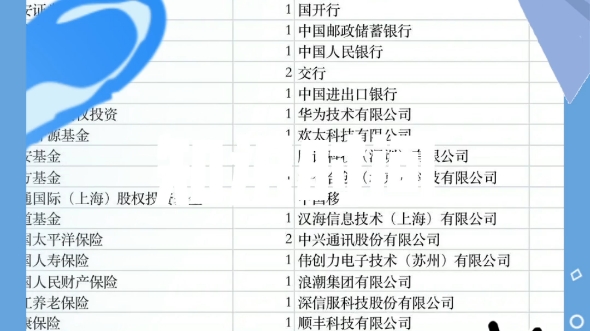 安证 1 国开行
1 中国邮政储蓄银行
1 中国人民银行
2 交行
1 中国进出口银行
权投资 1 华为技术有限公司
源基金 1 欢太科技有限公司
安基金 有限公司
方基金 技有限公司
通国际（上海）股权投 中国移
道基金 1 汉海信息技术（上海）有限公司
国太平洋保险 2 中兴通讯股份有限公司
国人寿保险 1 伟创力电子技术（苏州）有限公司
国人民财产保险 1 浪潮集团有限公司
江养老保险 1 深信服科技股份有限公司
康保险 1 顺丰科技有限公司